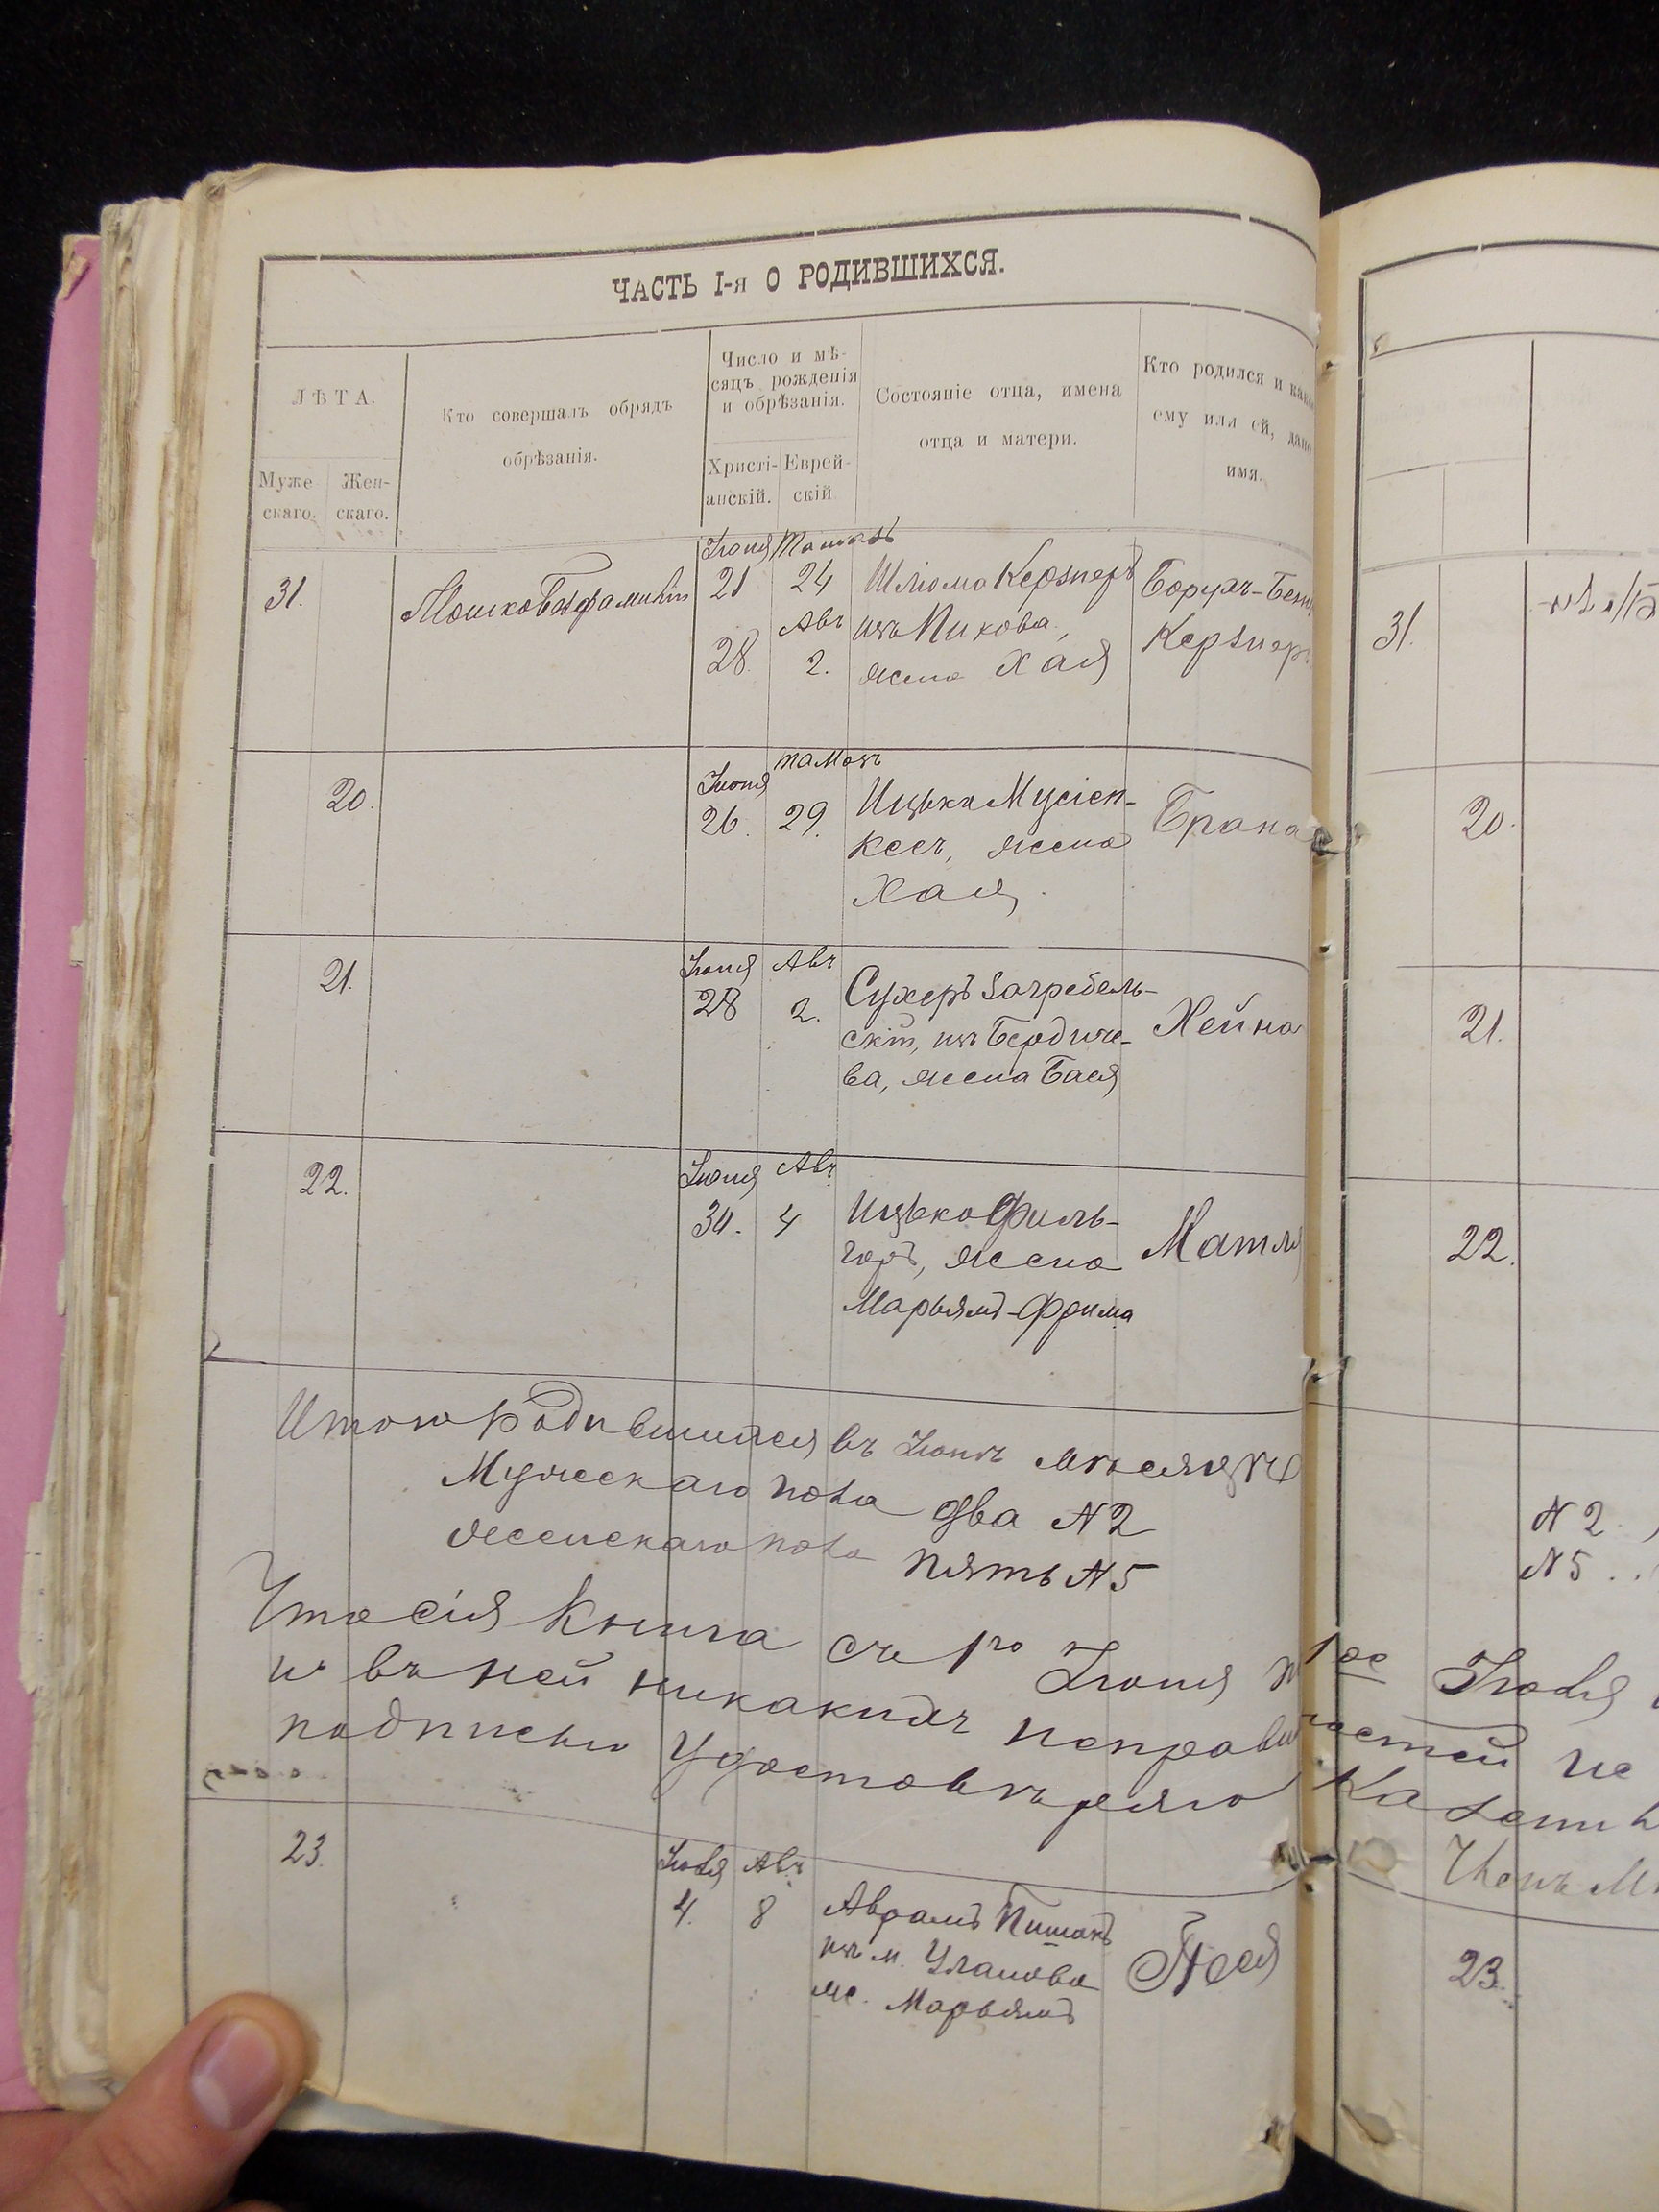 ЧАСТЬ I-я О РОДИВШИХСЯ.
ЛѢТА.
Муже
скаго.
Жен-
скаго.
Кто совершалъ обрядъ
обрѣзанія.
Число и мѣ-
сяцъ рожденія
и обрѣзанія.
Христі-
анскій.
Еврей-
скій
Состояніе отца, имена
отца и матери.
Кто родился и како
ему или ей, дано
имя.
31.
Мошко
Іюня
21
28.
24
Авъ
2.
Шліома Керзнеръ
изъ Пикова,
жена Хая
Борухъ-Бен
Керзнеръ
20.
Іюня
26.
тамозъ
29.
Ицько Мусіен-
жена
Хая
Брана
21.
Іюня
28
Авъ
2.
Сухеръ Загребель-
скій, изъ Бердиче-
ва, жена Бася
Хейна
22.
Іюня
30.
Авъ
4
Ицько Филь-
геръ, жена
Марьямъ-Фрима
Матля
Итого Родившихся въ Іюнѣ мѣсяцѣ
Мужескаго пола Два N 2
Женскаго пола пять N 5
Что сія Книга съ 1го Іюня
и въ ней никакихъ неправи
подписью Удостовѣряю
23.
Іюля
4.
Авъ
8
Аврамъ Пишакъ
изъ м. Уланова
ж. Марьямъ
Песя
31.
20.
21.
22.
N 2.
N 5..
1ое Іюля
ностей не
Казенн
Членъ
23.